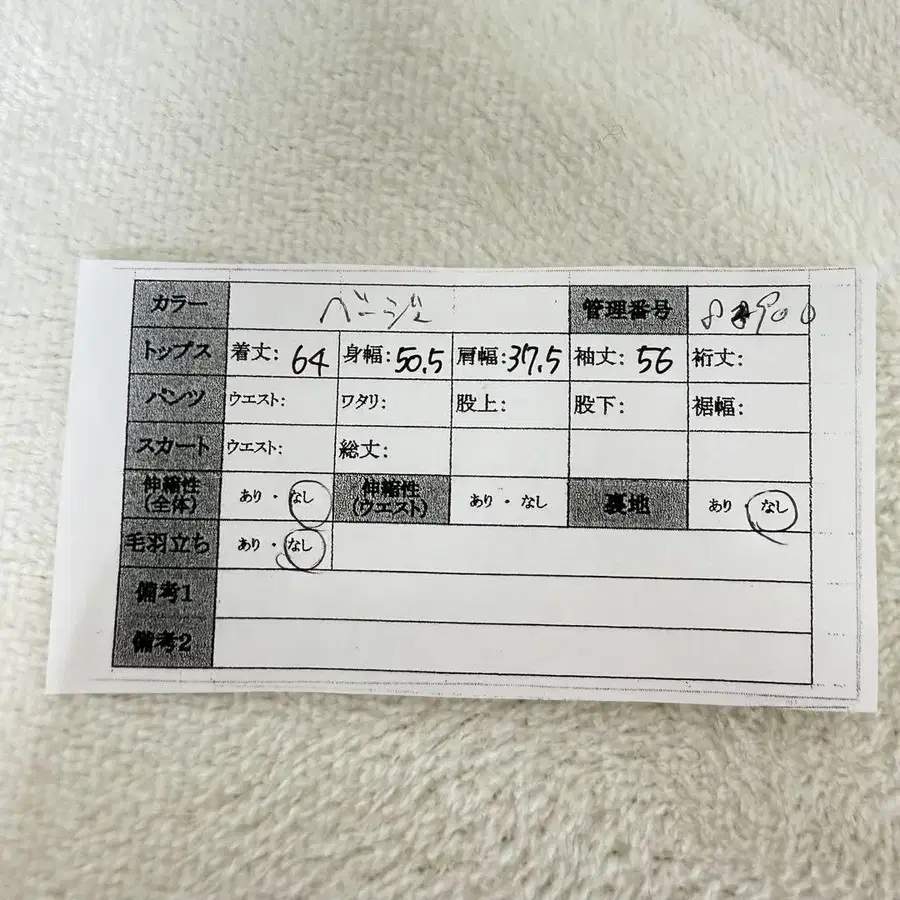 カラー ベージュ 管理番号
トップス 着丈: 64 身幅: 50.5 肩幅: 37.5 袖丈: 56 裄丈:
パンツ ウエスト: ワタリ: 股上: 股下: 裾幅:
スカート ウエスト: 総丈:
伸縮性(全体) あり・なし 伸縮性(ウエスト) あり・なし 裏地 あり・なし
毛羽立ち あり・なし
備考1
備考2